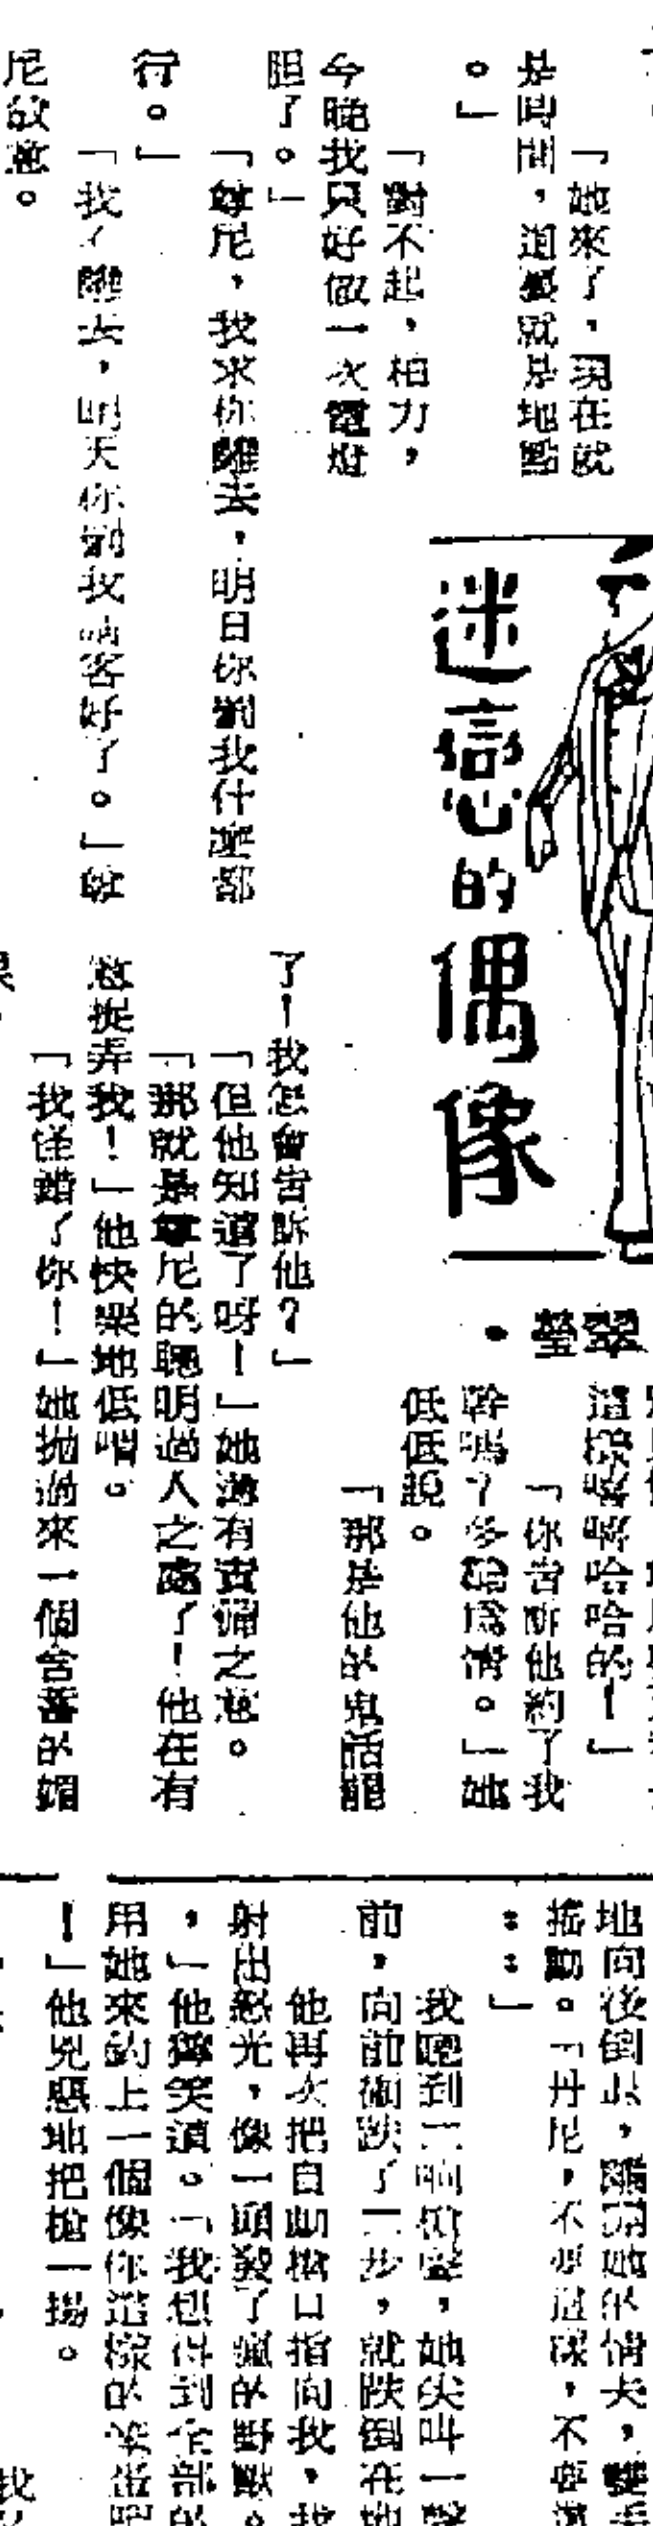 「她來了，現在就
是時間，這裏就是地點
。」
「對不起，柏力，
今晚我只好做一次電燈
胆了。」
「尊尼，我求你離去，明日你劏我什麼都
行。」
「我離去，明天你劏我請客好了。」尊
尼敵意。
迷惑心的偶像
翠瑩·
這樣嘻嘻哈哈的！」
「你告訴他約了我
幹嗎？多難為情。」她
低低說。
「那是他的鬼話罷
了！我怎會告訴他？」
「但他知道了呀！」她還有責備之意。
「那就是尊尼的聰明過人之處了！他在有
意捉弄我！」他快樂地低唱。
「我怪錯了你！」她拋過來一個含蓄的媚
地向後倒去，離開她的情夫，雙手
搖動。「丹尼，不要這樣，不要這
……」
我聽到二响槍聲，她尖叫一聲
前，向前衝跌了一步，就跌倒在地
他再次把自動槍口指向我，我
射出怒光，像一頭發了瘋的野獸。
，」他獰笑道。「我想得到全部的
用她來釣上一個像你這樣的笨蛋吧
！」他兇惡地把槍一揚。
我